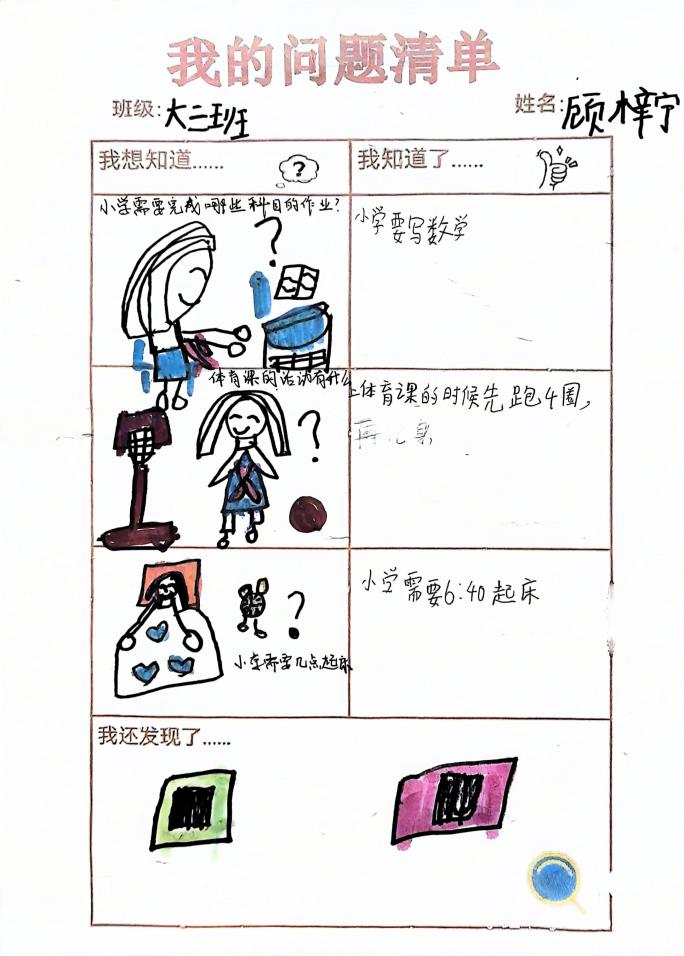 我的问题清单
班级:大二班
姓名:顾梓宁
我想知道......
?
我知道了......
小学需要完成哪些科目的作业?
?
小学要写数学
体育课的活动有什么
?
上体育课的时候先跑4圈,
再
?
小学需要几点起床
小学需要6:40起床
我还发现了......